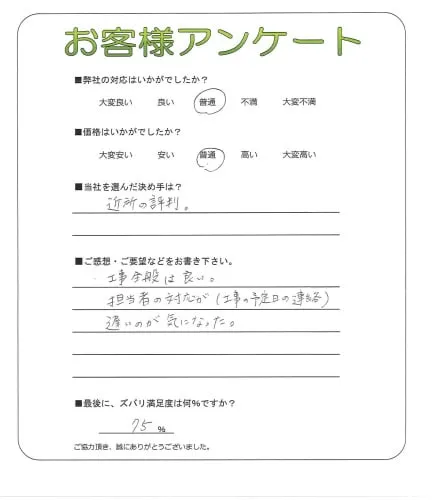 お客様アンケート
■弊社の対応はいかがでしたか？
大変良い 良い 普通 不満 大変不満
■価格はいかがでしたか？
大変安い 安い 普通 高い 大変高い
■当社を選んだ決め手は？
近所の評判。
■ご感想・ご要望などをお書き下さい。
・工事全般は良い。
担当者の対応が（工事の予定日の連絡）
遅いのが気になった。
■最後に、ズバリ満足度は何％ですか？
75 ％
ご協力頂き、誠にありがとうございました。